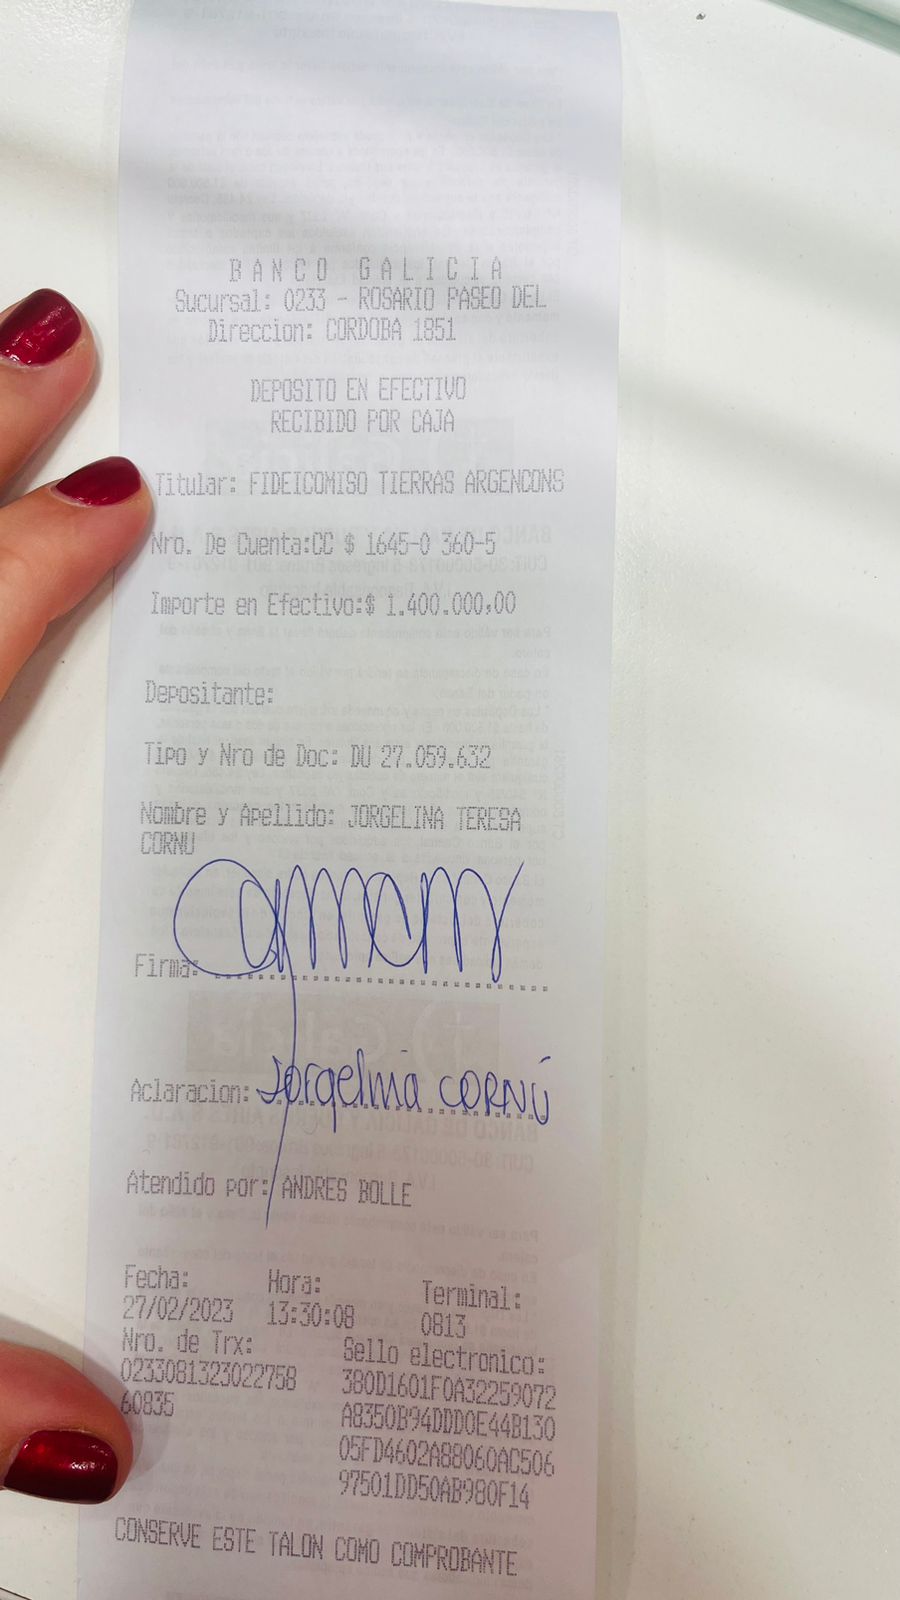 BANCO GALICIA
Sucursal: 0233 - ROSARIO PASEO DEL
Direccion: CORDOBA 1851
DEPOSITO EN EFECTIVO
RECIBIDO POR CAJA
Titular: FIDEICOMISO TIERRAS ARGENCONS
Nro. De Cuenta:CC $ 1645-0 360-5
Importe en Efectivo:$ 1.400.000,00
Depositante:
Tipo y Nro de Doc: DU 27.059.632
Nombre y Apellido: JORGELINA TERESA
CORNU
Firma:
Aclaracion: Jorgelina CORNÚ
Atendido por: ANDRES BOLLE
Fecha: Hora: Terminal:
27/02/2023 13:30:08 0813
Nro. de Trx: Sello electronico:
0233081323022758 380D1601F0A32259072
60835 A8350B94DDD0E44B130
05FD4602A88060AC506
97501DD50AB980F14
CONSERVE ESTE TALON COMO COMPROBANTE